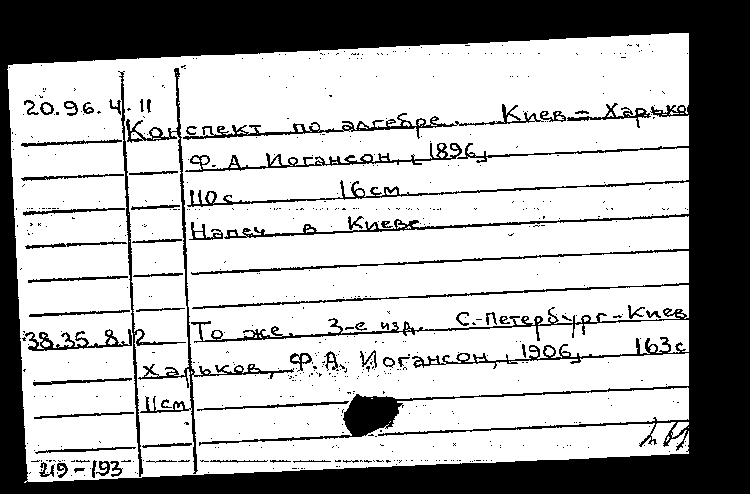 20.96.4.11
Конспект по алгебре. Киев - Харько
Ф. А. Иогансон, [1896]
110 с. 16 см.
Напеч в Киеве
38.35.8.12. То же. 3-е изд. С.-Петербург-Киев
Харьков, Ф. А. Иогансон, [1906]. 163 с
11 см
219-193